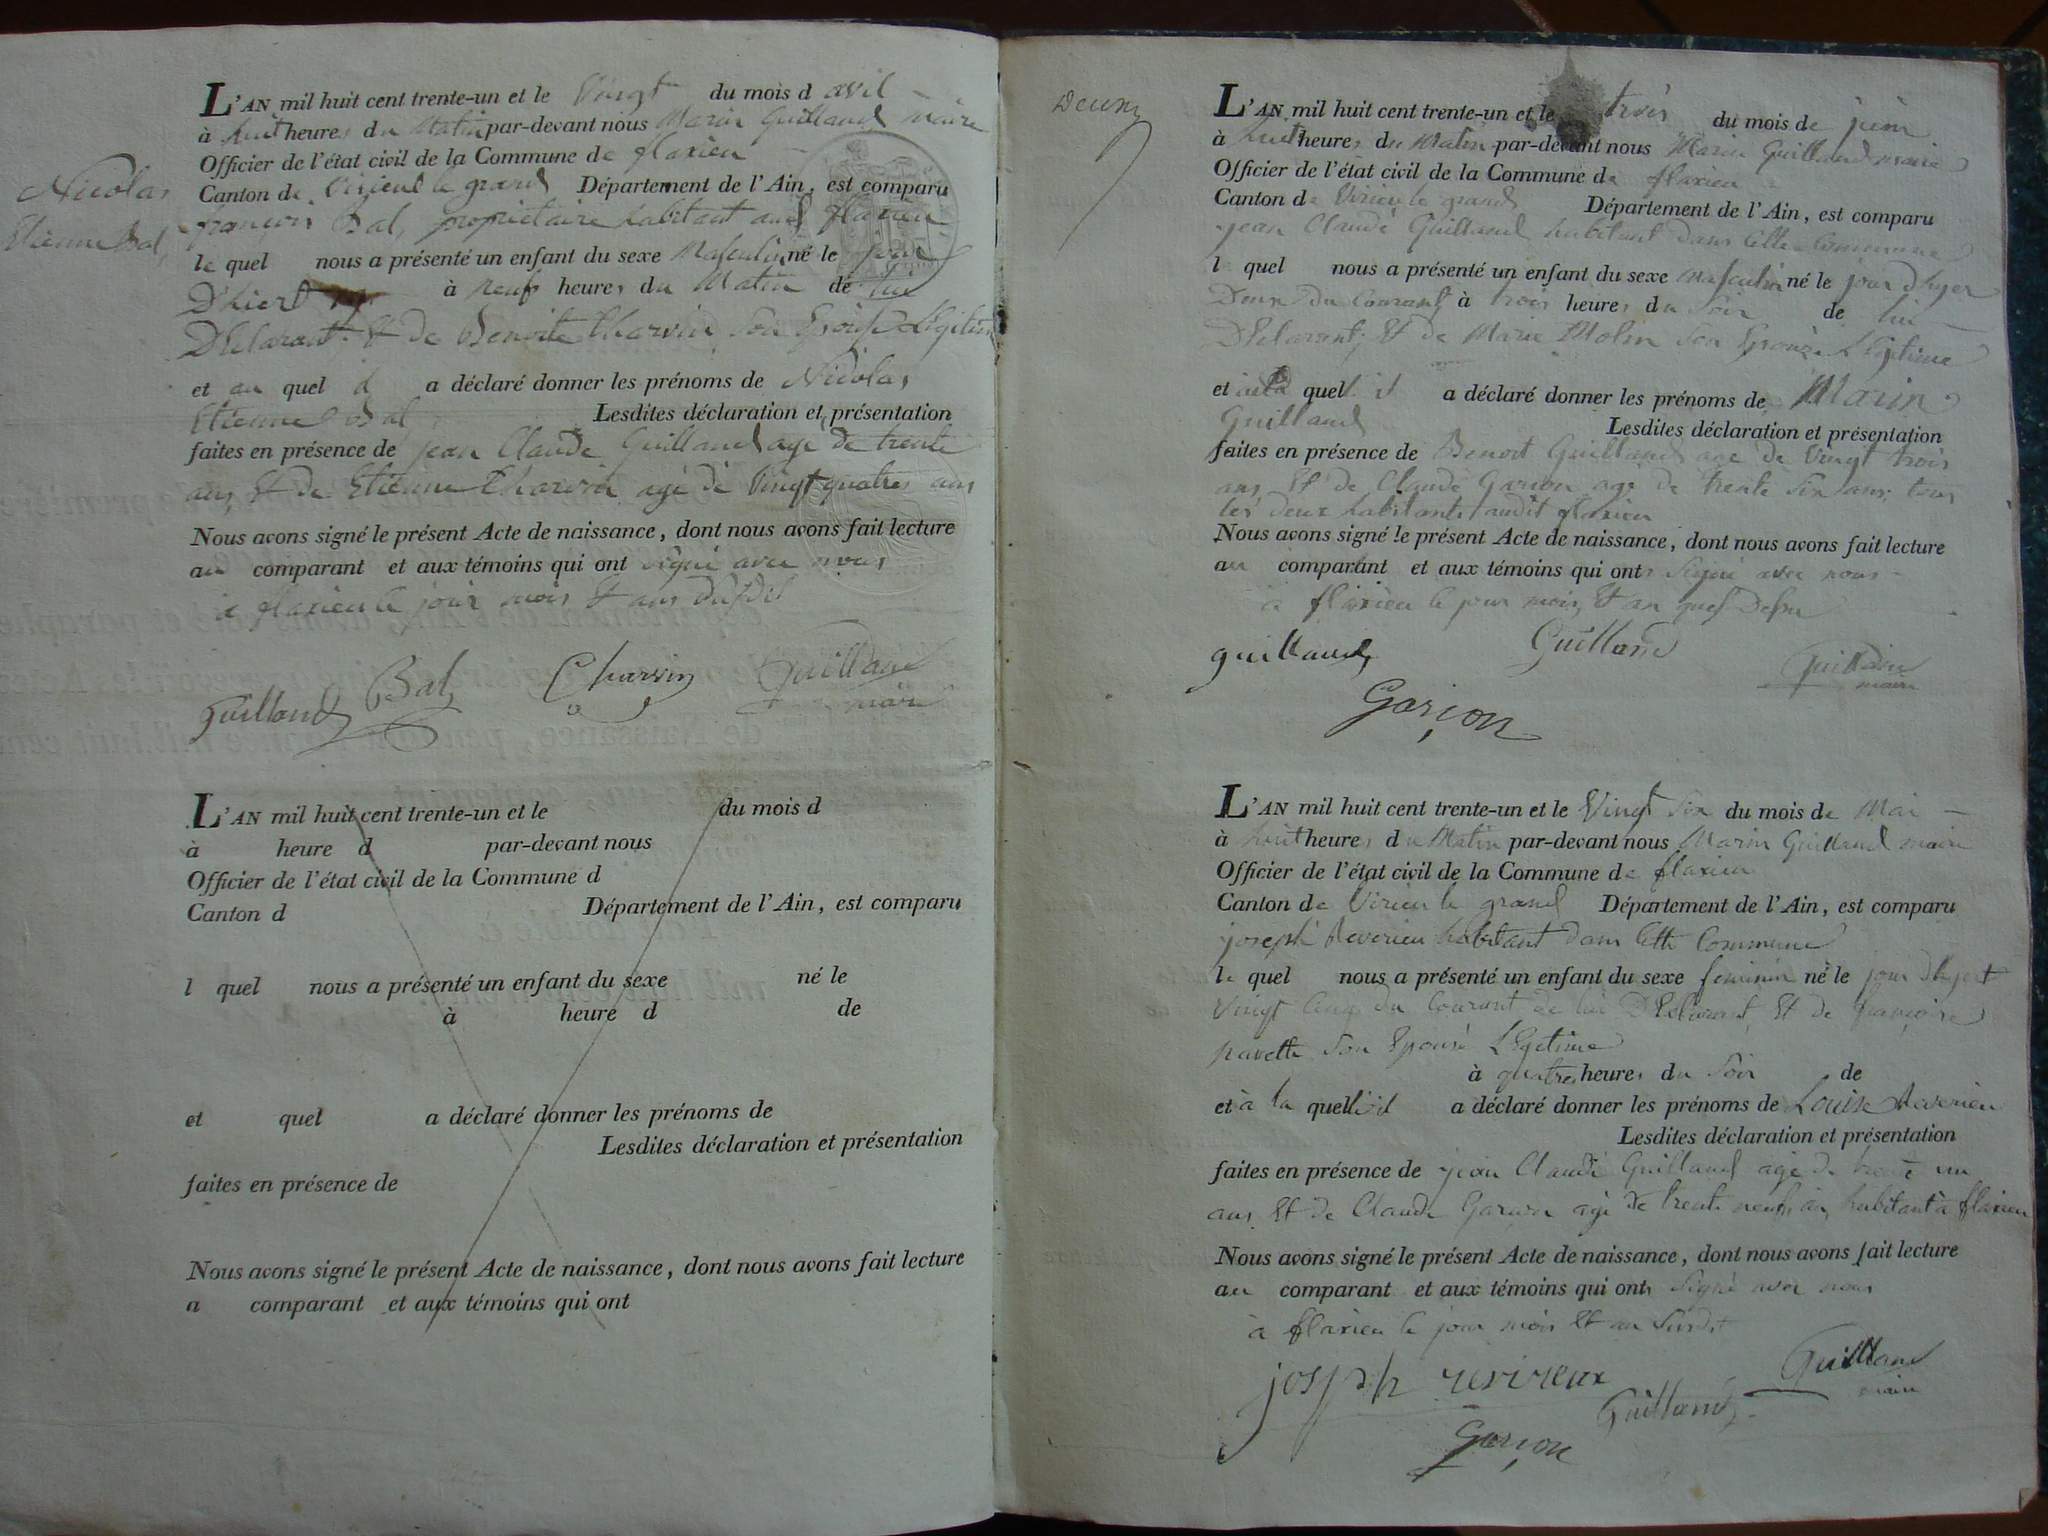 L'AN mil huit cent trente-un et le Vingt du mois d avil
à huit heures du Matin par-devant nous Marin Guilland maire
Officier de l'état civil de la Commune de flaxieu
Canton de Virieu le grand Département de l'Ain, est comparu
françois Bal, propriétaire habitant aud flaxieu
le quel nous a présenté un enfant du sexe Masculin né le jour
D'hiert à neuf heures du Matin de lui
Déclarant Et de Benoite Charvin Son Epouse Légitime
et au quel il a déclaré donner les prénoms de Nicolas
Etienne Bal Lesdites déclaration et présentation
faites en présence de jean Claude Guilland agé de trente
ans Et de Etienne Charvin agé de Vingt quatres ans
Nous avons signé le présent Acte de naissance, dont nous avons fait lecture
au comparant et aux témoins qui ont signé avec nous
à flaxieu le jour mois Et ans
Nicolas
Etienne Bal
Guilland Bal Charvin Guilland
maire
L'AN mil huit cent trente-un et le du mois d
à heure d par-devant nous
Officier de l'état civil de la Commune d
Canton d Département de l'Ain, est comparu
l quel nous a présenté un enfant du sexe né le
à heure d de
et quel a déclaré donner les prénoms de
Lesdites déclaration et présentation
faites en présence de
Nous avons signé le présent Acte de naissance, dont nous avons fait lecture
a comparant et aux témoins qui ont
L'AN mil huit cent trente-un et le trois du mois de juin
à huit heures du Matin par-devant nous Marin Guilland maire
Officier de l'état civil de la Commune de flaxieu
Canton de Virieu le grand Département de l'Ain, est comparu
jean Claude Guilland habitant dans Cette Commune
l quel nous a présenté un enfant du sexe masculin né le jour d'hyer
Deux du Courant à trois heures du Soir de lui
Déclarant, Et de Marie Molin Son Epouse Légitime
et quel il a déclaré donner les prénoms de Marin
Guilland Lesdites déclaration et présentation
faites en présence de Benoit Guilland agé de Vingt trois
ans Et de Claude Garçon agé de trente Six ans, tous
les deux habitants audit flaxieu
Nous avons signé le présent Acte de naissance, dont nous avons fait lecture
au comparant et aux témoins qui ont Signé avec nous
à flaxieu le jour mois Et an que Dessu
guilland Guilland Guilland
maire
Garçon
L'AN mil huit cent trente-un et le Vingt Six du mois de Mai
à huit heures du Matin par-devant nous Marin Guilland maire
Officier de l'état civil de la Commune de flaxieu
Canton de Virieu le grand Département de l'Ain, est comparu
joseph Reverieu habitant dans Cette Commune
le quel nous a présenté un enfant du sexe feminin né le jour d'hyert
Vingt Cinq du Courant de lui Déclarant Et de françoise
pavette Son Epouse Légitime
à quatres heures du Soir de
et à la quelle il a déclaré donner les prénoms de Louise Reverieu
Lesdites déclaration et présentation
faites en présence de jean Claude Guilland agé de trente un
ans Et de Claude Garçon agé de trente neuf an habitant à flaxieu
Nous avons signé le présent Acte de naissance, dont nous avons fait lecture
au comparant et aux témoins qui ont Signé avec nous
à flaxieu le jour mois Et an Susdit
josph revireux Guilland
maire
Guilland
Garçon